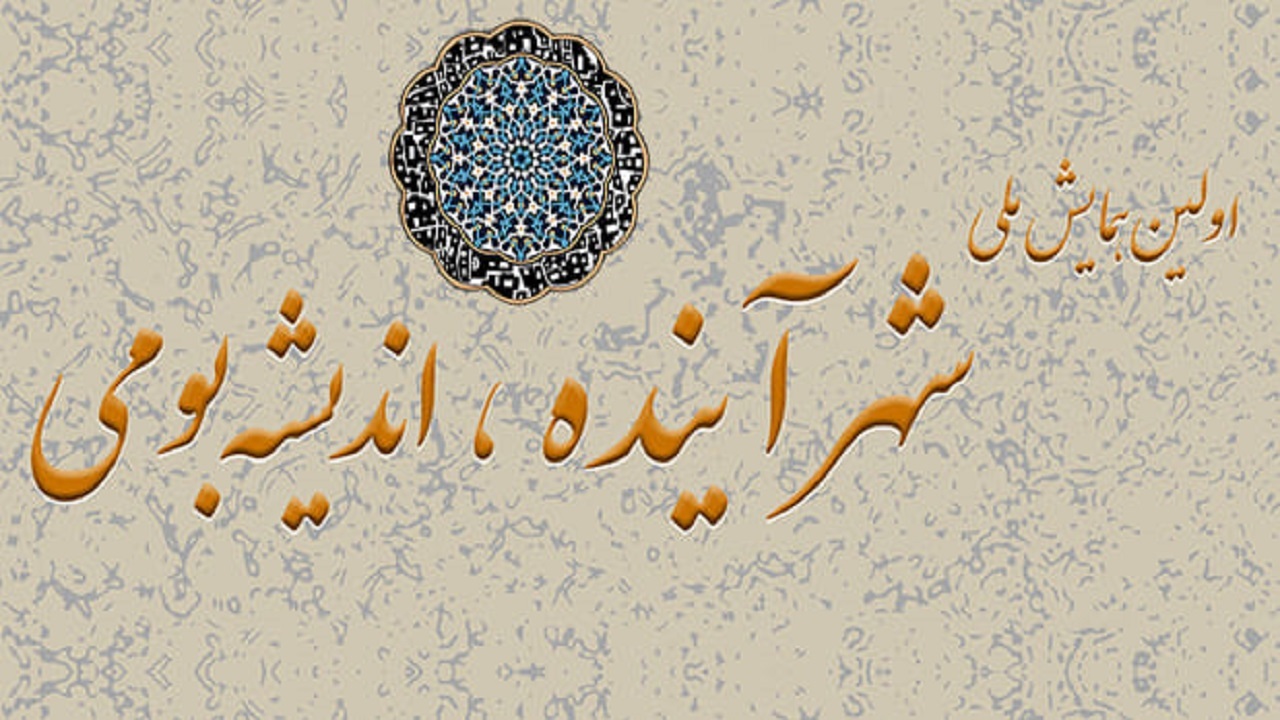 اولین همایش ملی
شهر آینده ، اندیشه بومی